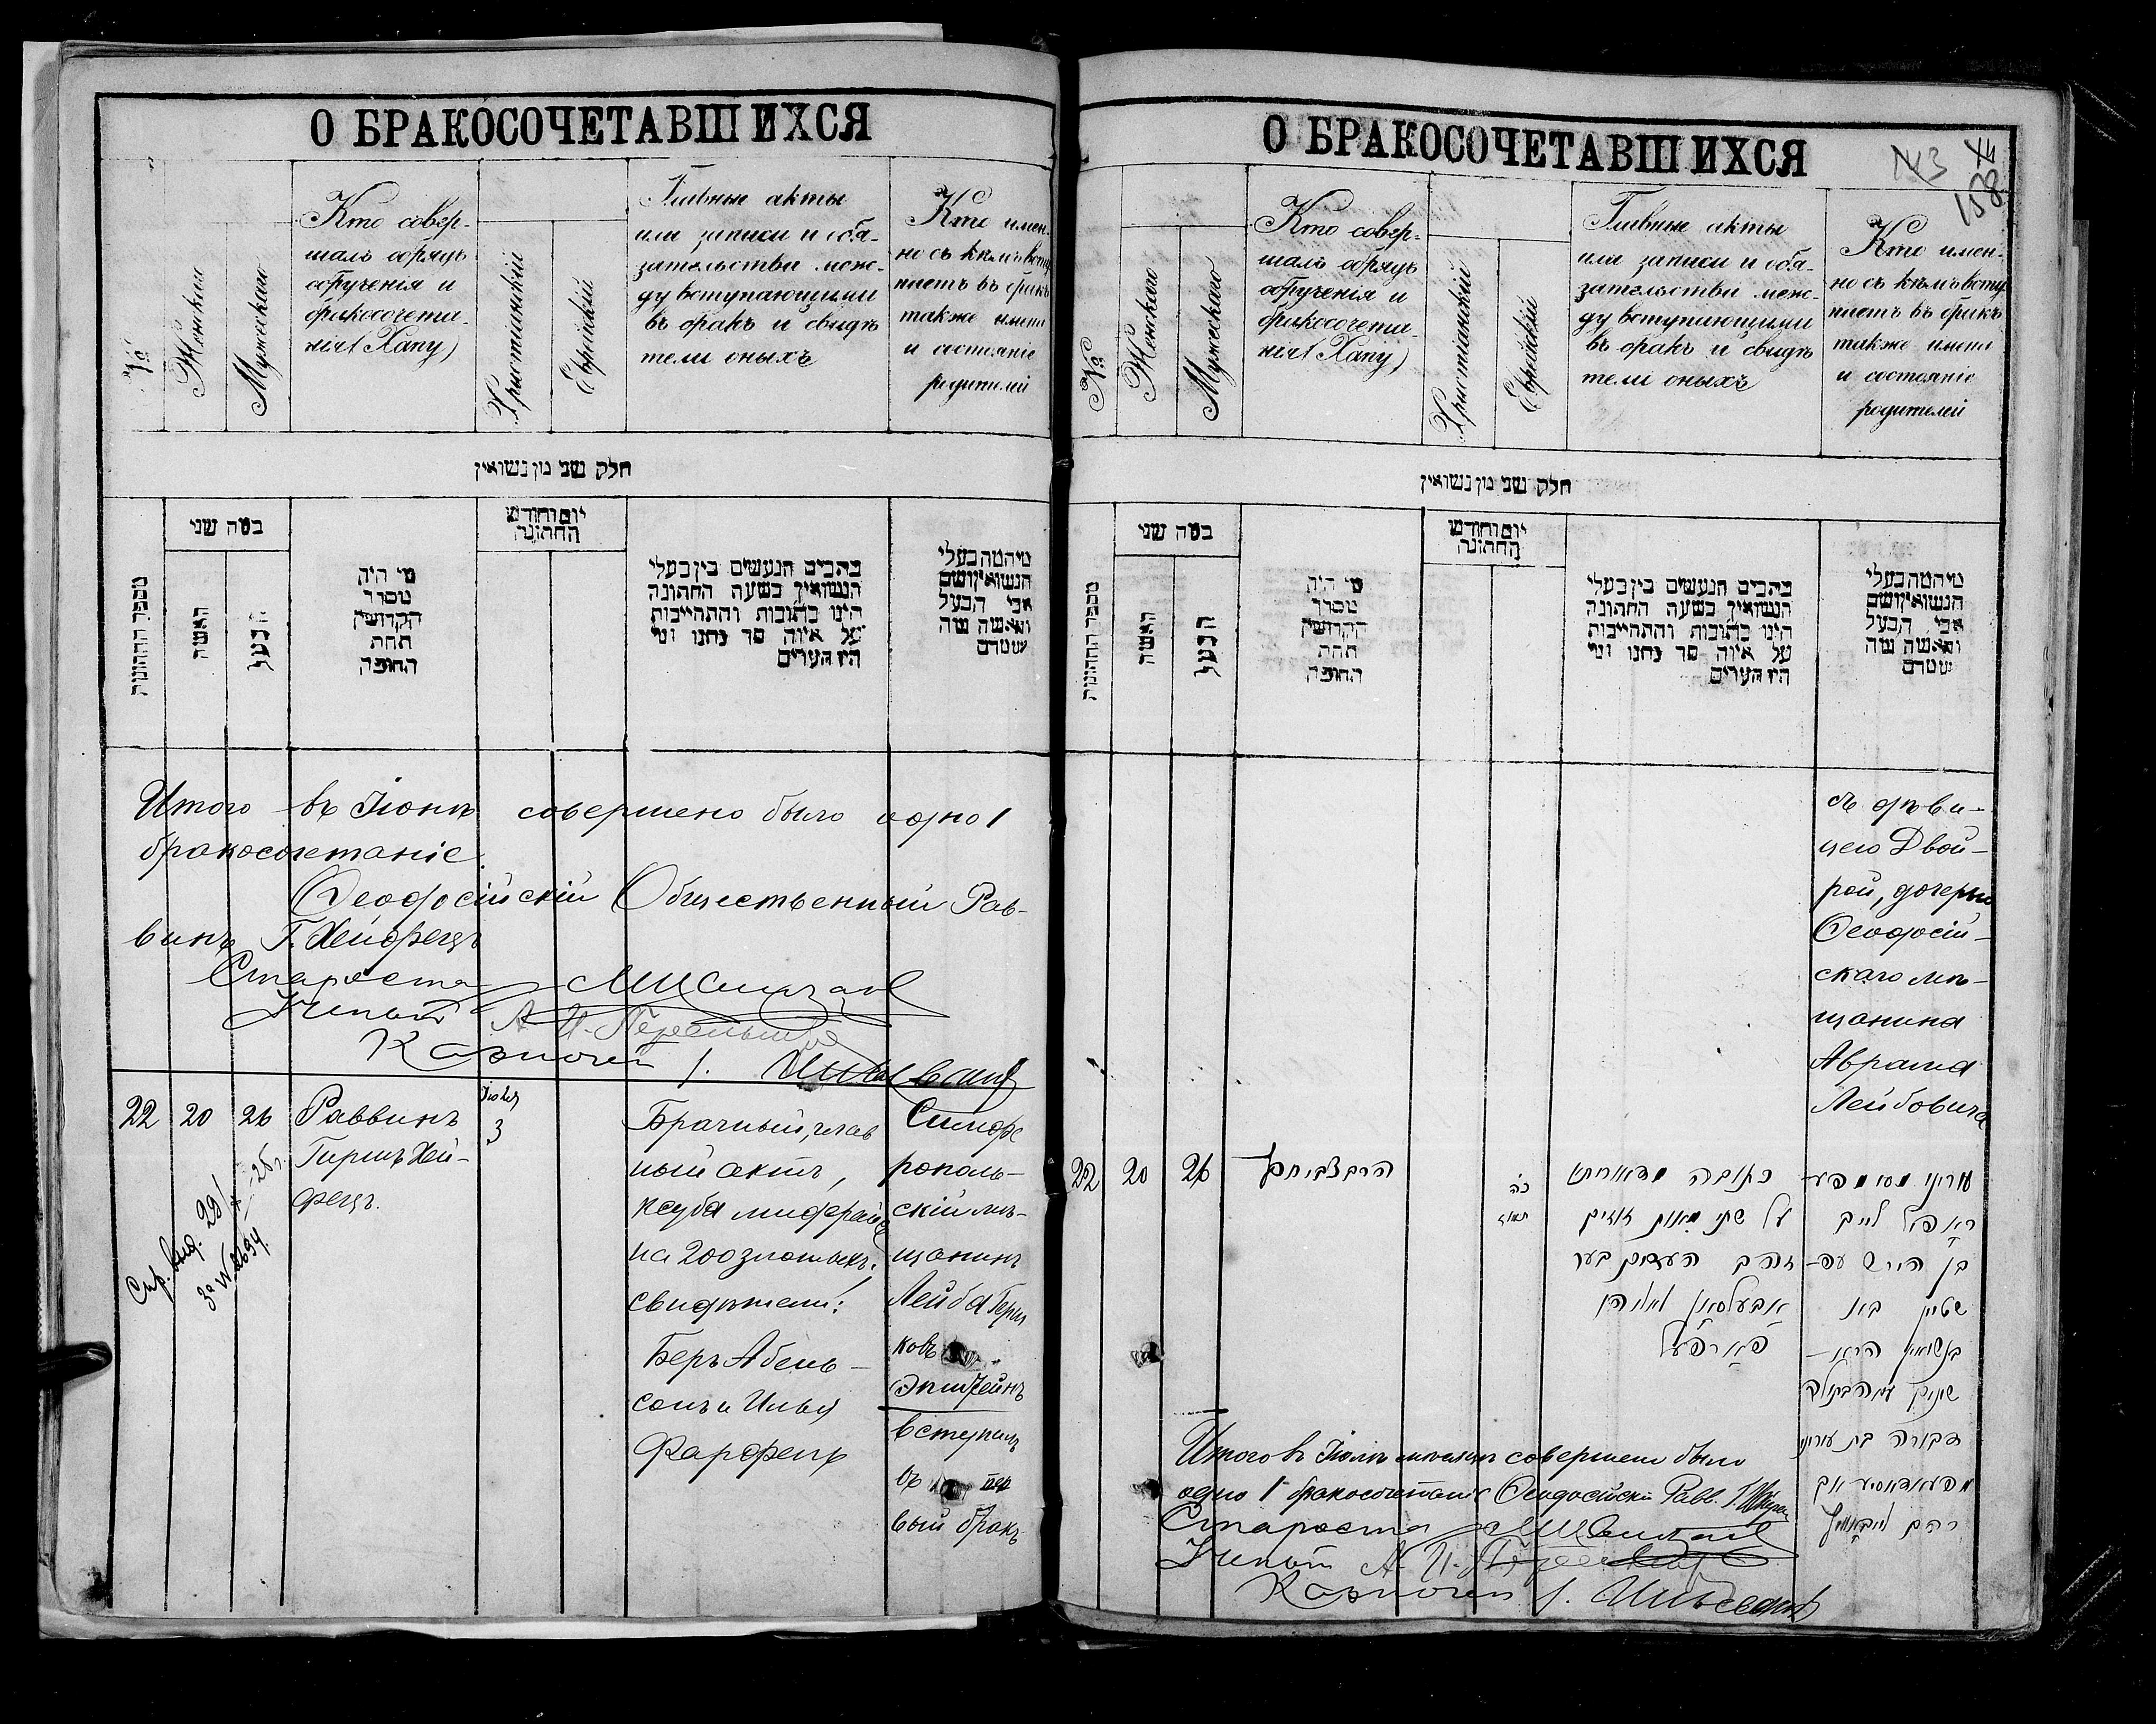 О БРАКОСОЧЕТАВШИХСЯ
№
Женскаго
Мужескаго
Кто совер-
шалъ обрядъ
обрученія и
бракосочета-
нія (Хапу)
Христіанскій
Еврейскій
Главные акты
или записи и обя-
зательства меж-
ду вступающими
въ бракъ и свидѣ
тели оныхъ
Кто имен-
но съ кѣмъ всту
паетъ въ бракъ
также имена
и состояніе
родителей
חלק שני מן נשואין
מספר החתונות
כמה שני
האשה
הבעל
מי היה
מסדר
הקדושין
תחת
החופה
יום וחודש
החתונה
כתבים הנעשים בין בעלי
הנשואין בשעה החתונה
היינו כתובות והתחייבות
על איזה סך נתנו ומי
היו העדים
מי המה בעלי
הנשואין ושם
אבי הבעל
והאשה ומה
שמדם
Итого въ Іюнѣ совершено было одно 1
бракосочетаніе.
Ѳеодосійскій Общественный Рав-
винъ Г. Хейфецъ
Староста
Ученый
Казначей
22 20 26
Раввинъ
Гиршъ Хей-
фецъ.
Іюля
3
Брачный, глав
ный актъ,
на 200 злотыхъ:
свидѣтели:
Беръ Абель-
сонъ и Илья
Фарфель
Симфе
рополь-
скій мѣ-
щанинъ
Лейба Герш
ковъ
Эпштейнъ
вступилъ
въ пер
вый бракъ
Спр. выд. 29/
за № 2694.
О БРАКОСОЧЕТАВШИХСЯ
143
158
№
Женскаго
Мужескаго
Кто совер-
шалъ обрядъ
обрученія и
бракосочета-
нія (Хапу)
Христіанскій
Еврейскій
Главные акты
или записи и обя-
зательства меж-
ду вступающими
въ бракъ и свидѣ
тели оныхъ
Кто имен-
но съ кѣмъ всту
паетъ въ бракъ
также имена
и состояніе
родителей
חלק שני מן נשואין
מספר החתונות
כמה שני
האשה
הבעל
מי היה
מסדר
הקדושין
תחת
החופה
יום וחודש
החתונה
כתבים הנעשים בין בעלי
הנשואין בשעה החתונה
היינו כתובות והתחייבות
על איזה סך נתנו ומי
היו העדים
מי המה בעלי
הנשואין ושם
אבי הבעל
והאשה ומה
שמדם
съ дѣви-
цею Двой-
рой, дочерью
Ѳеодосій-
скаго мѣ-
щанина
Абрама
Лейбовича
22 20 26
כה
תמוז
כתובה מדאורייתא
על שתי מאות זוזים
זהב העדים בער
אבעלסאן ואליהו
פארפעל
בן הירש עפ-
שטיין בא
בנשואין הרא-
שונים עם הבתולה
דבורה בת עירוני
Итого въ Іюлѣ мѣсяцѣ совершено было
одно 1 бракосочетаніе Ѳеодосійскій Равв.
Староста
Ученый
Казначей